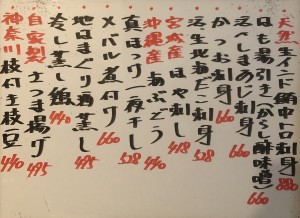 天然生インド鮪中トロ刺身 880
はも湯引き(からし酢味噌) 660
活〆しまあじ刺身 660
かつお刺身 660
活生北海たこ刺身 528
宮城産 ほや刺し 418
沖縄産 海ぶどう 440
真ほっけ一夜干し 528
メバル煮付け 660
地はまぐり酒蒸し 495
冷し蒸し鶏 440
自家製 さつま揚げ 495
神奈川枝付き枝豆 440